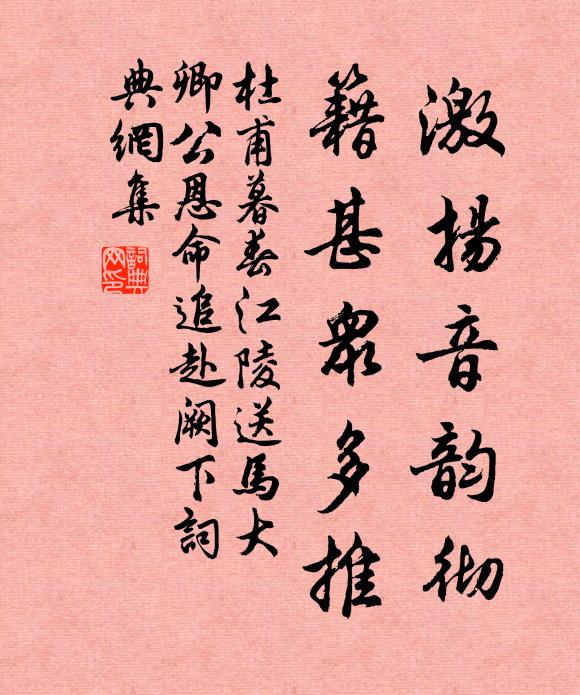 激揚音韵彻
籍甚眾多推
杜甫暮春江陵送馬大
卿公恩命追赴阙下詞
典網集
詞典网印